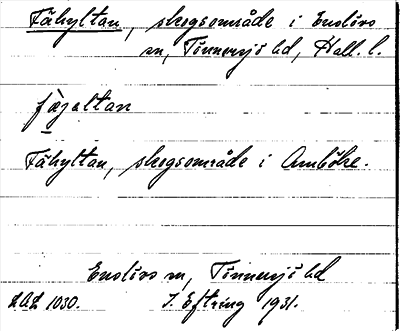 Fähyltan, skogsområde i Enslövs
sn, Tönnersjö hd, Hall. l.
fæjəltan
Fähyltan, skogsområde i Amböke.
Enslövs sn, Tönnersjö hd
LAL 1030. I. Eftring 1931.